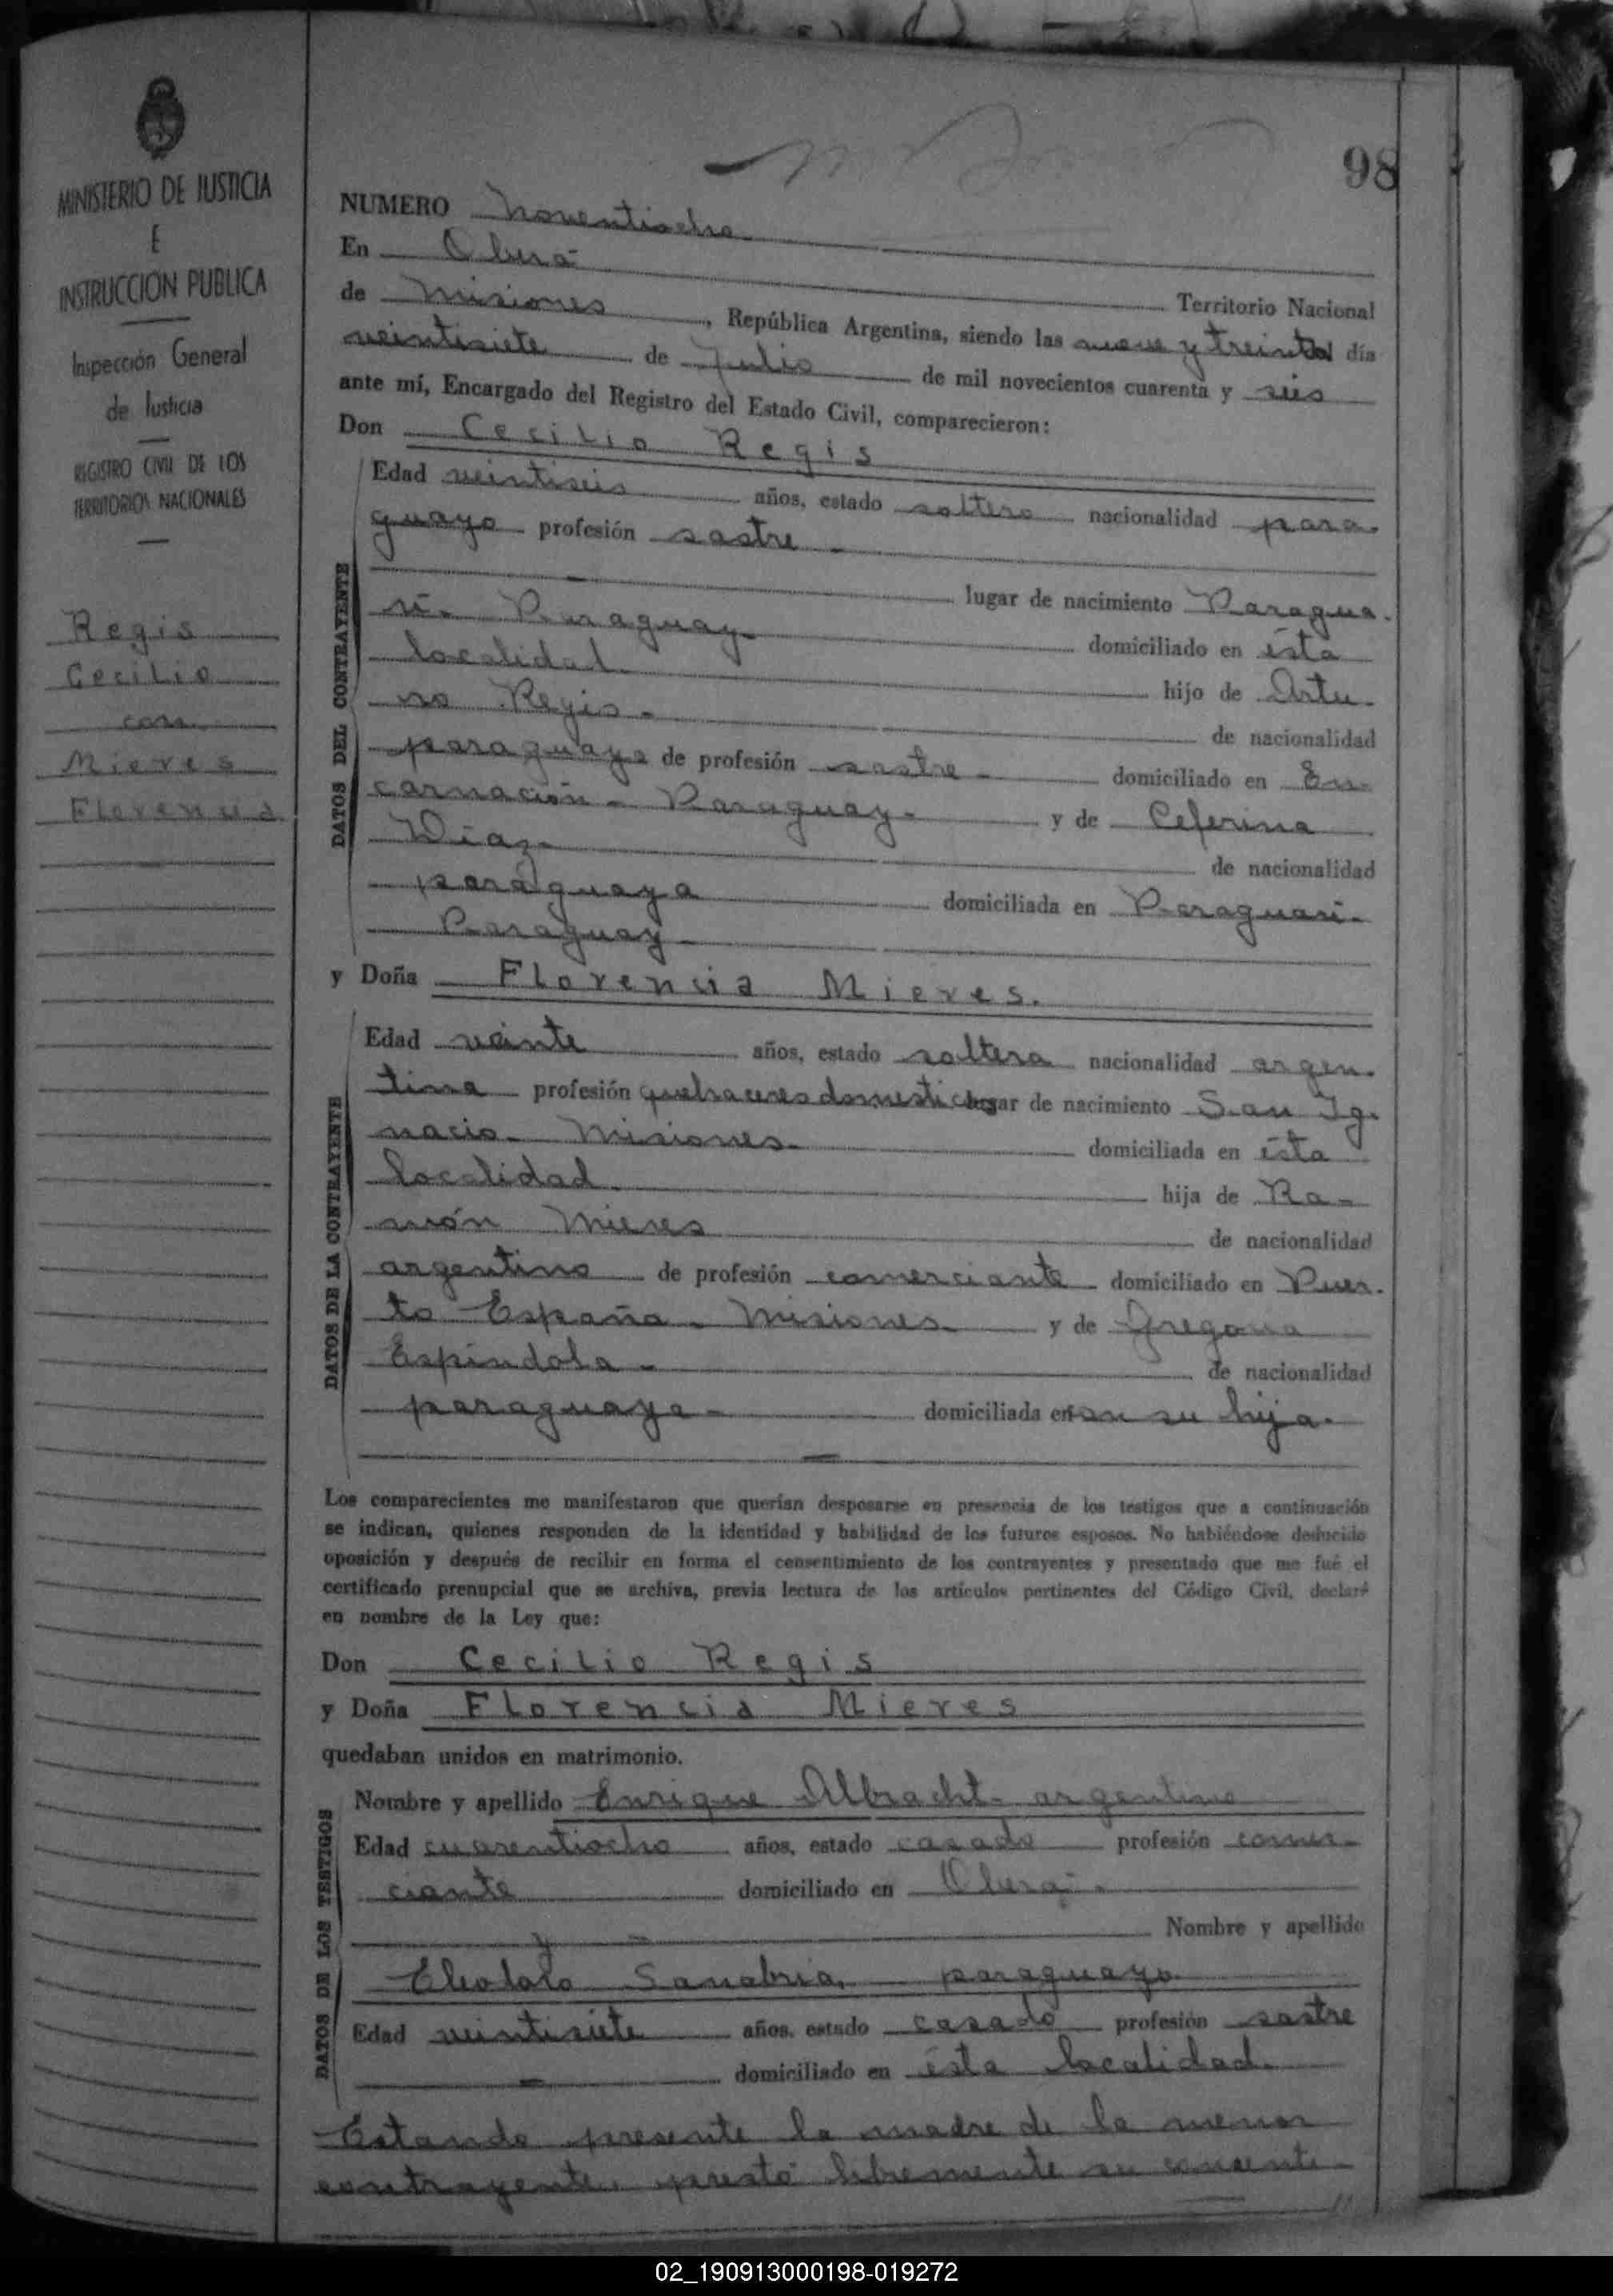 98
MINISTERIO DE JUSTICIA
E
INSTRUCCION PUBLICA
Inspección General
de Justicia
REGISTRO CIVIL DE LOS
TERRITORIOS NACIONALES
Regis
Cecilio
con
Mieres
Florencia
NUMERO Noventiocho
En Oberá
Territorio Nacional
de Misiones, República Argentina, siendo las nueve y treinta día
veintisiete de Julio de mil novecientos cuarenta y seis
ante mí, Encargado del Registro del Estado Civil, comparecieron:
Don Cecilio Regis
DATOS DEL CONTRAYENTE
Edad veintiseis años, estado soltero nacionalidad para-
guayo profesión sastre -
lugar de nacimiento Paragua-
rí- Paraguay- domiciliado en ésta
localidad. hijo de Artu-
ro Regis - de nacionalidad
paraguayo de profesión sastre - domiciliado en En-
carnación - Paraguay - y de Ceferina
Diaz - de nacionalidad
paraguaya domiciliada en Paraguarí-
Paraguay -
y Doña Florencia Mieres.
DATOS DE LA CONTRAYENTE
Edad veinte años, estado soltera nacionalidad argen-
tina profesión quehaceres domesticos lugar de nacimiento San Ig-
nacio - Misiones - domiciliada en ésta
localidad. hija de Ra-
món Mieres de nacionalidad
argentino de profesión comerciante domiciliado en Puer-
to España - Misiones - y de Gregoria
Espíndola - de nacionalidad
paraguaya - domiciliada en con su hija.
Los comparecientes me manifestaron que querían desposarse en presencia de los testigos que a continuación
se indican, quienes responden de la identidad y habilidad de los futuros esposos. No habiéndose deducido
oposición y después de recibir en forma el consentimiento de los contrayentes y presentado que me fué el
certificado prenupcial que se archiva, previa lectura de los artículos pertinentes del Código Civil, declaré
en nombre de la Ley que:
Don Cecilio Regis
y Doña Florencia Mieres
quedaban unidos en matrimonio.
DATOS DE LOS TESTIGOS
Nombre y apellido Enrique Albracht - argentino
Edad cuarentiocho años, estado casado profesión comer-
ciante domiciliado en Oberá -
y - Nombre y apellido
Sanabria, paraguayo
Edad veintisiete años, estado casado profesión sastre
- domiciliado en ésta localidad.
Estando presente la madre de la menor
contrayente, prestó libremente su consenti-
02_190913000198-019272